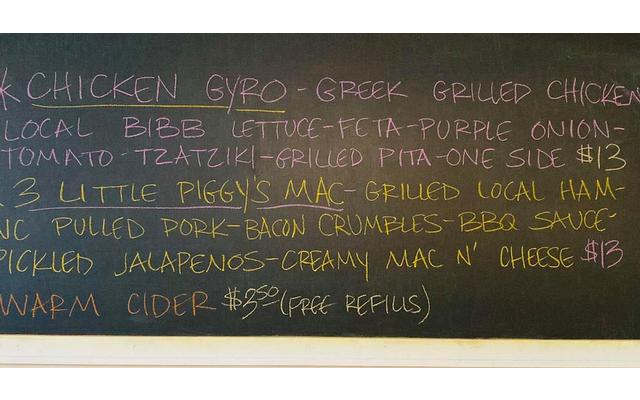 * CHICKEN GYRO - GREEK GRILLED CHICKEN
LOCAL BIBB LETTUCE-FETA-PURPLE ONION-
TOMATO - TZATZIKI-GRILLED PITA-ONE SIDE $13
3 LITTLE PIGGY'S MAC-GRILLED LOCAL HAM-
NC PULLED PORK-BACON CRUMBLES-BBQ SAUCE-
PICKLED JALAPENOS-CREAMY MAC N' CHEESE $13
WARM CIDER $3.50 (FREE REFILLS)